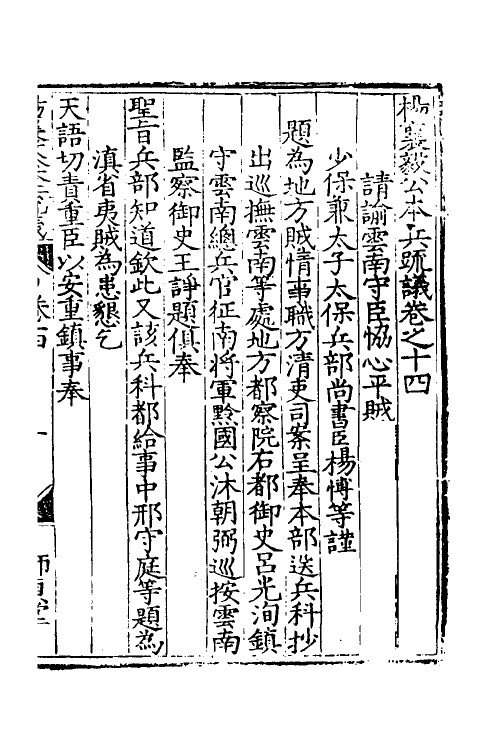 楊襄毅公本兵疏議卷之十四
請諭雲南守臣恊心平賊
少保兼太子太保兵部尚書臣楊博等謹
題為地方賊情事職方清吏司案呈奉本部送兵科抄
出巡撫雲南等處地方都察院右都御史呂光洵鎮
守雲南總兵官征南將軍黔國公沐朝弼巡按雲南
監察御史王諍題俱奉
聖旨兵部知道欽此又該兵科都給事中邢守庭等題為
滇省夷賊為患懇乞
天語切責重臣以安重鎮事奉
卷十四
一
師貞堂